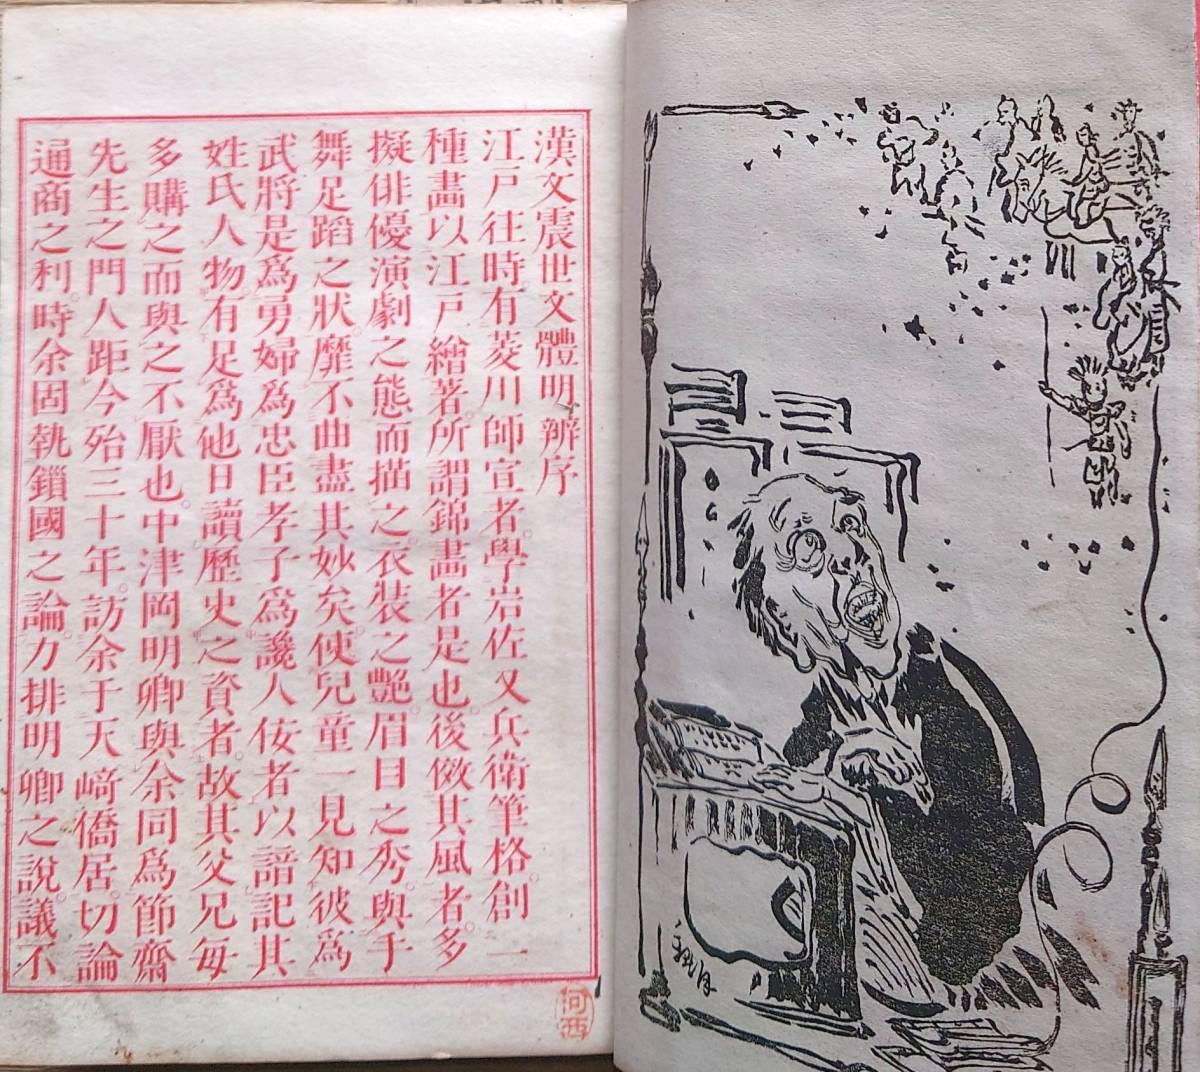 漢文震世文體明辨序
江戸往時有菱川師宣者。學岩佐又兵衛筆格。創一
種畫以江戸繪著。所謂錦畫者是也。後傚其風者。多
擬俳優演劇之態而描之。衣裝之艷。眉目之秀。與手
舞足蹈之狀。靡不曲盡其妙矣。使兒童一見知彼爲
武將是爲勇婦爲忠臣孝子爲讒人佞者以諳記其
姓氏人物。有足爲他日讀歷史之資者。故其父兄每
多購之而與之不厭也。中津岡明卿與余同爲節齋
先生之門人距今殆三十年。訪余于天﨑僑居。切論
通商之利。時余固執鎖國之論。力排明卿之說。議不
河西